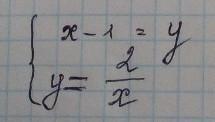 x - 1 = y
y = 2/x